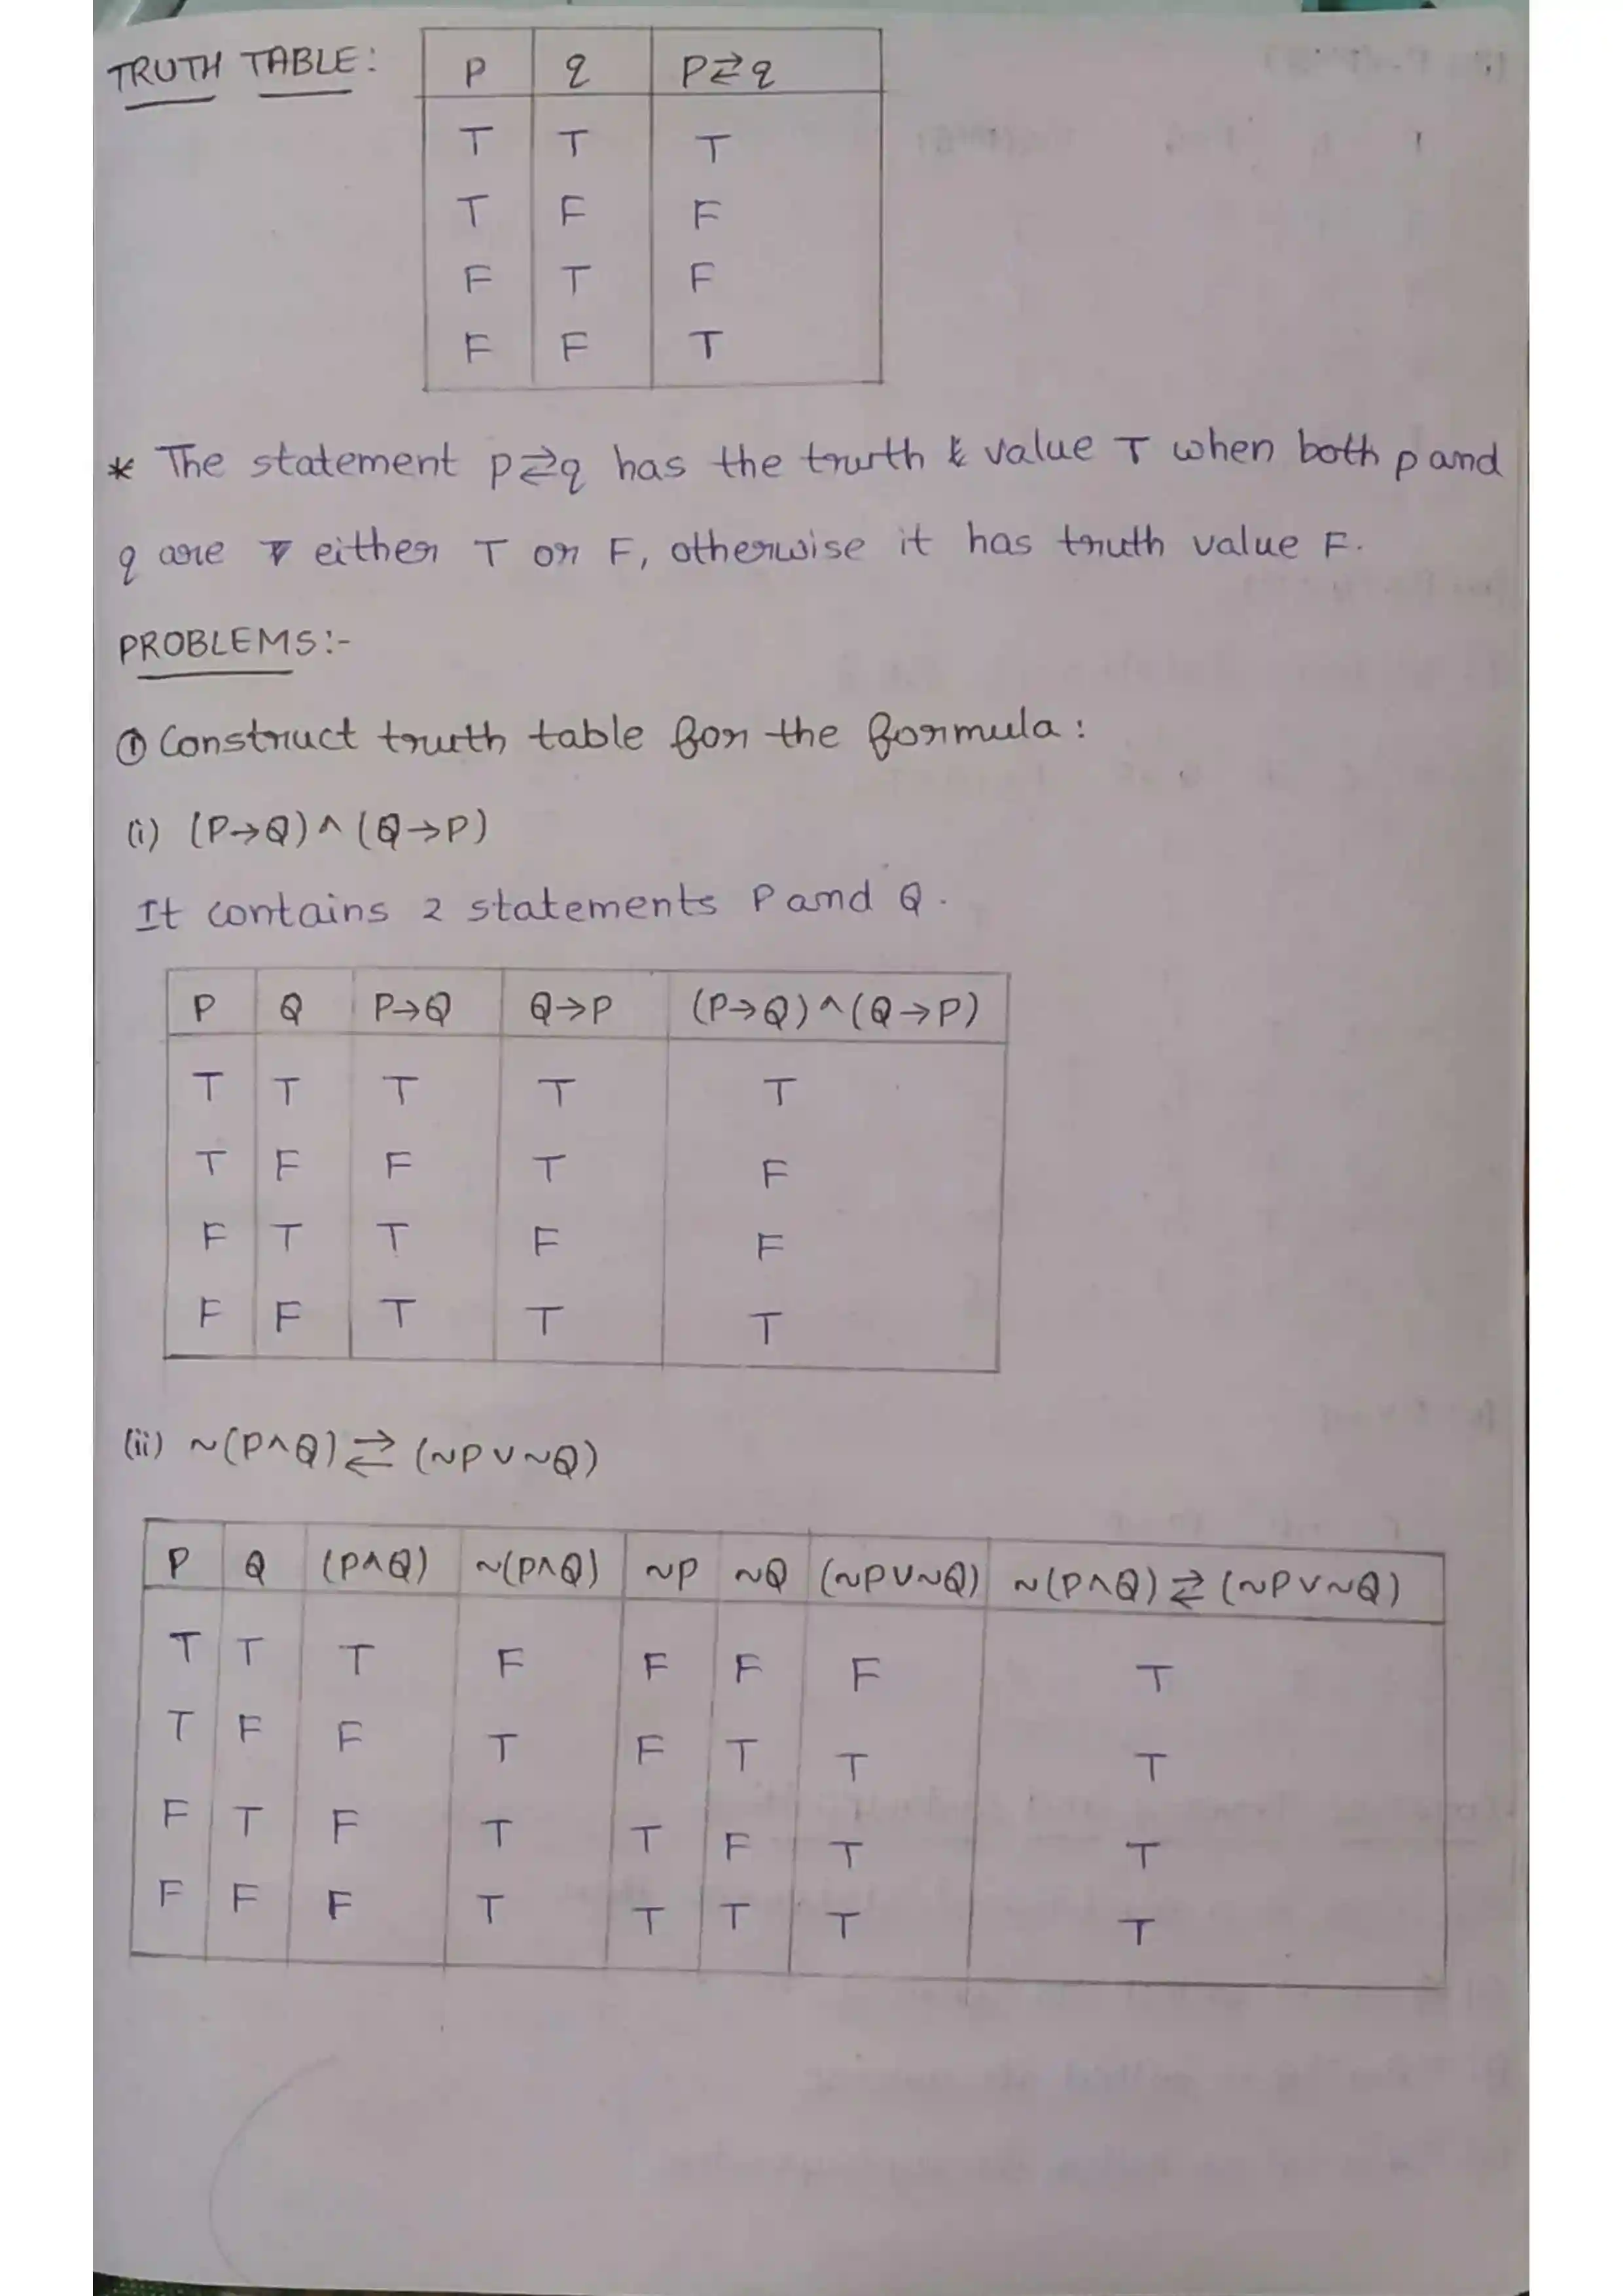 TRUTH TABLE:
P q P⇄q
T T T
T F F
F T F
F F T
* The statement p⇄q has the truth value T when both p and
q are either T or F, otherwise it has truth value F.
PROBLEMS:-
① Construct truth table for the formula:
(i) (P→Q)∧(Q→P)
It contains 2 statements P and Q.
P Q P→Q Q→P (P→Q)∧(Q→P)
T T T T T
T F F T F
F T T F F
F F T T T
(ii) ~(P∧Q)⇄(~P∨~Q)
P Q (P∧Q) ~(P∧Q) ~P ~Q (~P∨~Q) ~(P∧Q)⇄(~P∨~Q)
T T T F F F F T
T F F T F T T T
F T F T T F T T
F F F T T T T T